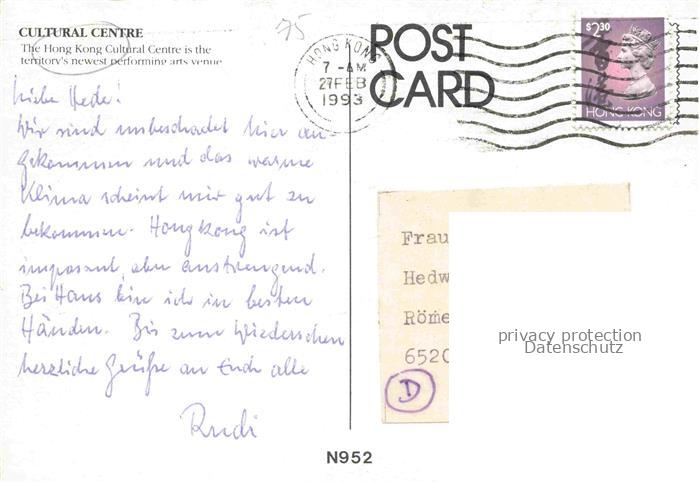 75
CULTURAL CENTRE
The Hong Kong Cultural Centre is the
territory's newest performing arts venue
HONG KONG
7 - AM
27 FEB
1993
POST
CARD
$2.30
HONG KONG
Liebe Hede!
Wir sind unbeschadet hier an-
gekommen und das warme
Klima scheint mir gut zu
bekommen. Hongkong ist
imposant, aber anstrengend.
Bei Hans bin ich in besten
Händen. Bis zum Wiedersehen
herzliche Grüße an Euch alle
Rudi
Frau
Hedw
Röme
6520
D
privacy protection
Datenschutz
N952